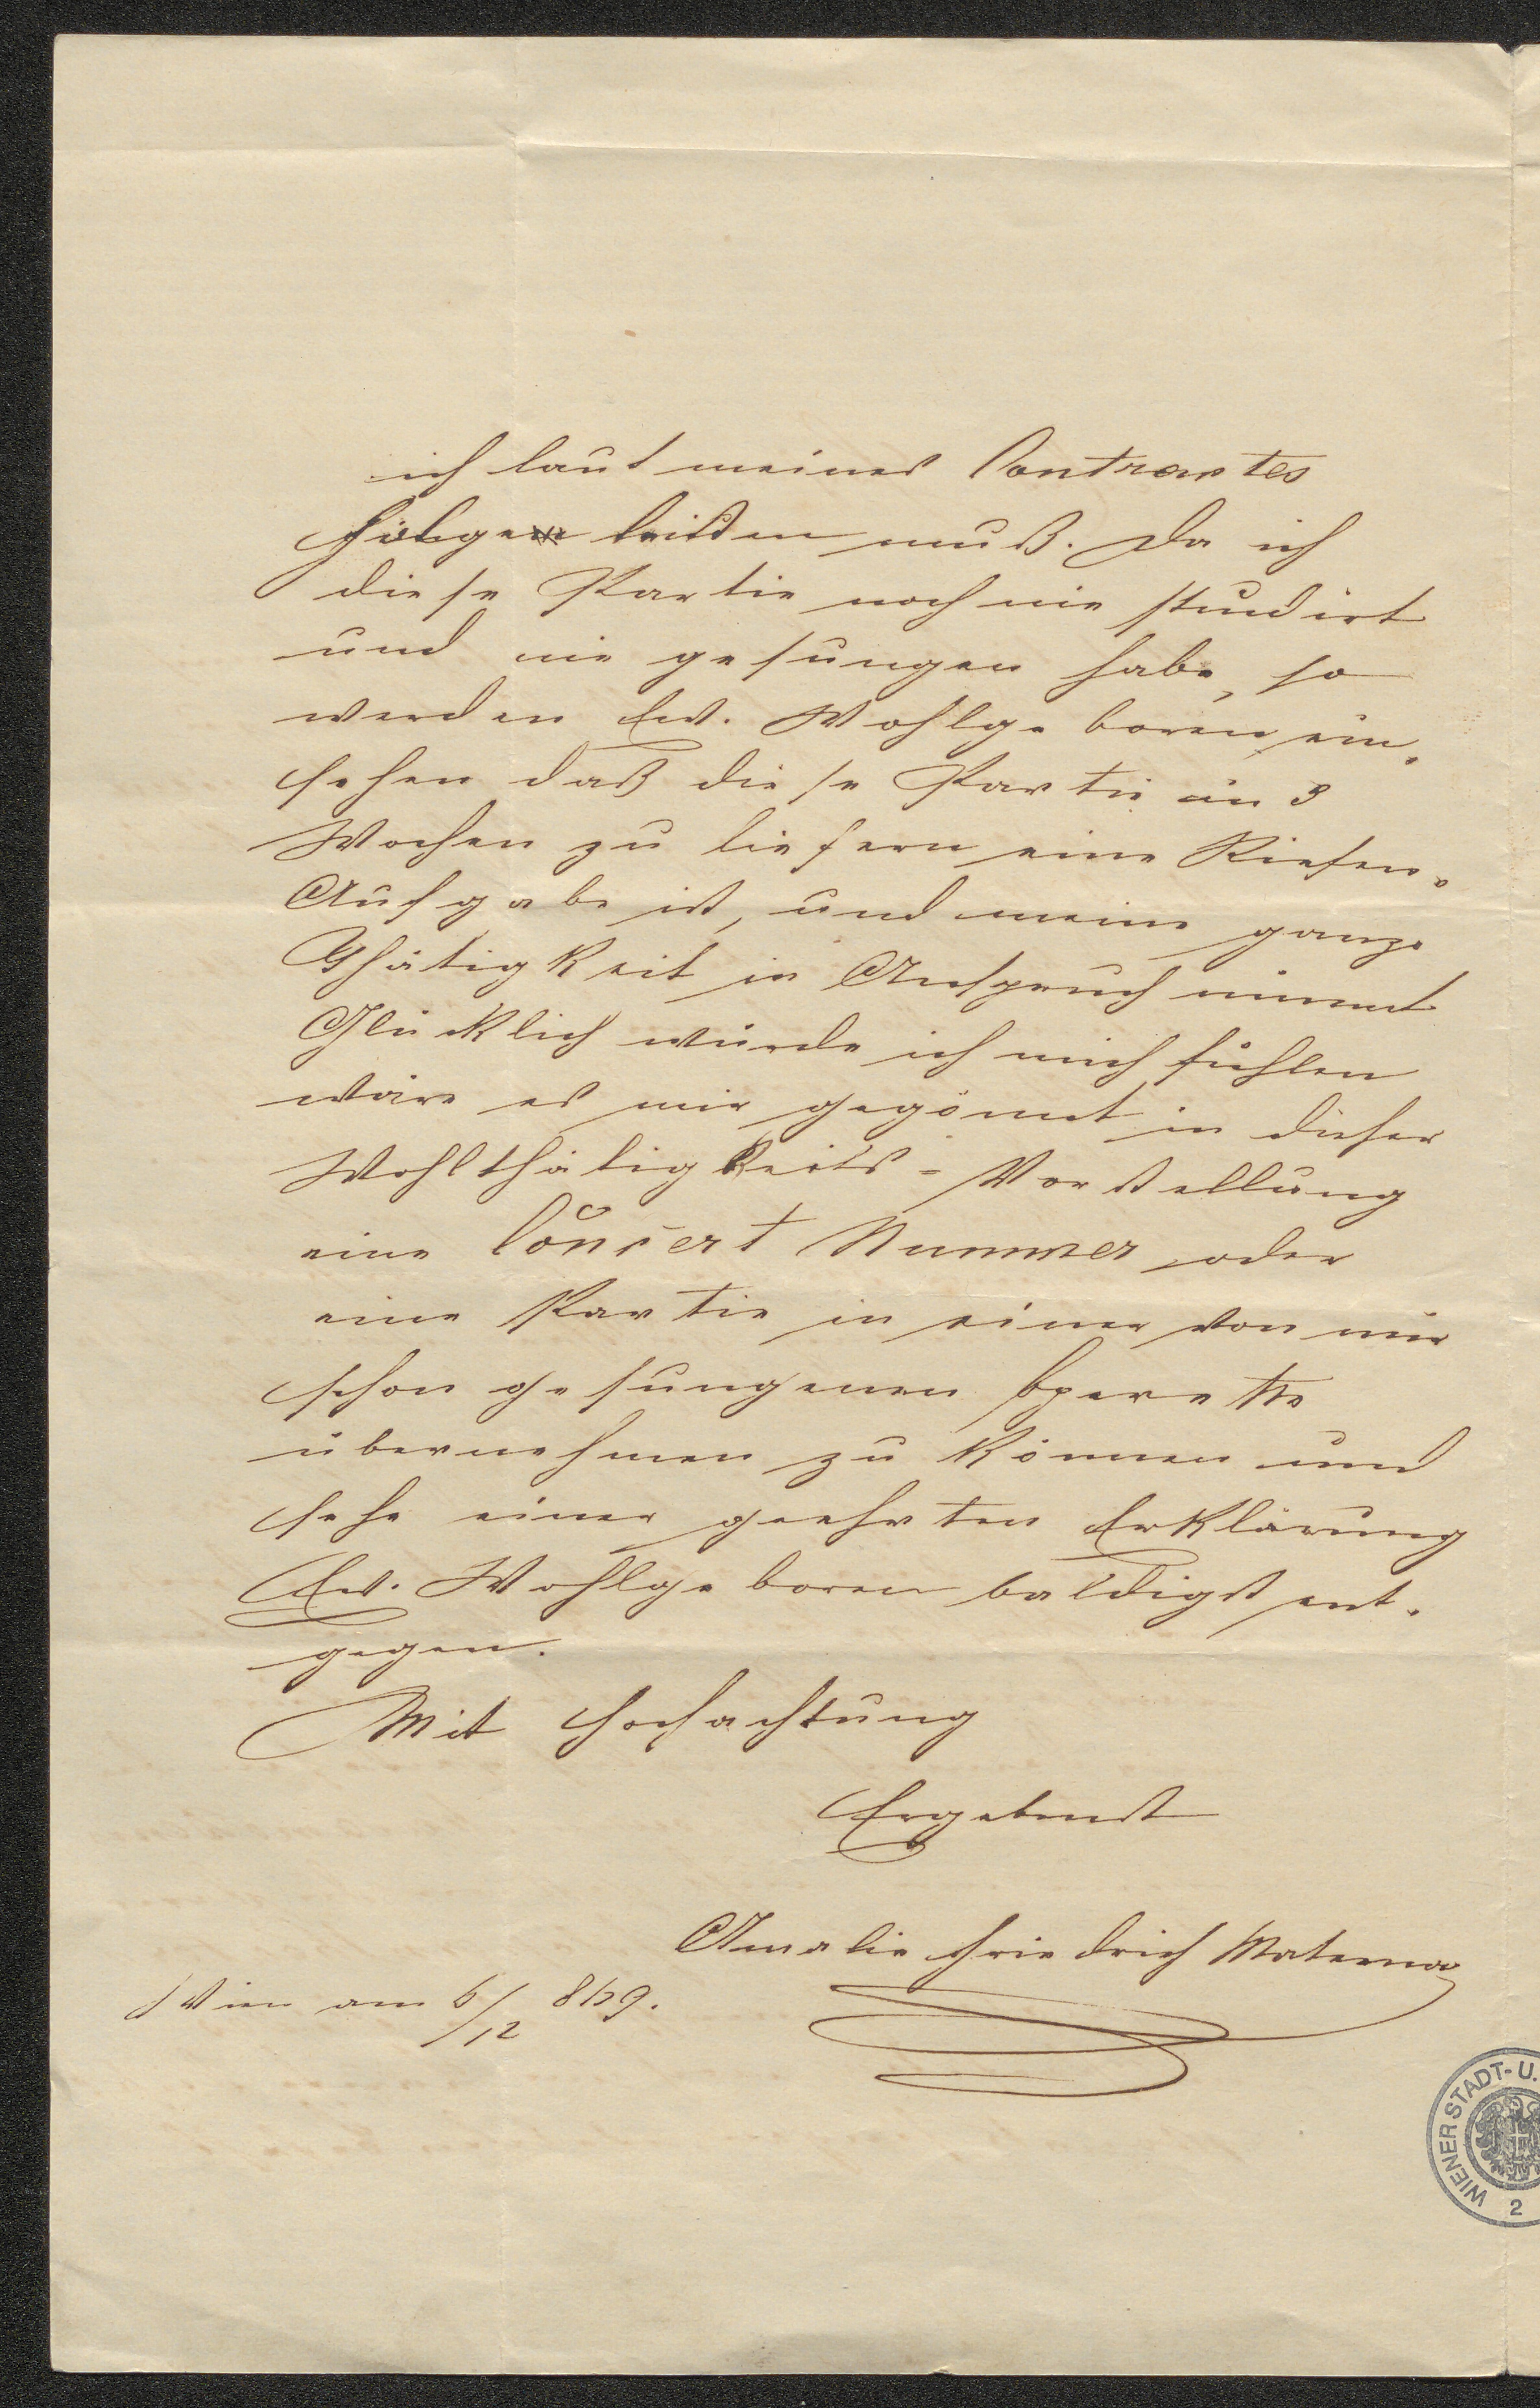 ich laut meines Contractes
Folge leisten muß. Da ich
diese Partie noch nie studirt
und nie gesungen habe, so
werden Ew. Wohlgeboren ein-
sehen daß diese Partie in 3
Wochen zu liefern eine Riesen-
Aufgabe ist, und meine ganze
Thätigkeit in Anspruch nimmt
Glücklich würde ich mich fühlen
wäre es mir gegönnt in dieser
Wohlthätigkeits-Vorstellung
eine Concert Nummer oder
eine Partie in einer von mir
schon gesungenen Operette
übernehmen zu können und
sehe einer geehrten Erklärung
Ew. Wohlgeboren baldigst ent-
gegen.
Mit Hochachtung
Ergebenst
Amalie Friedrich Materna
Wien am 6/12 869.
WIENER STADT- U.
2